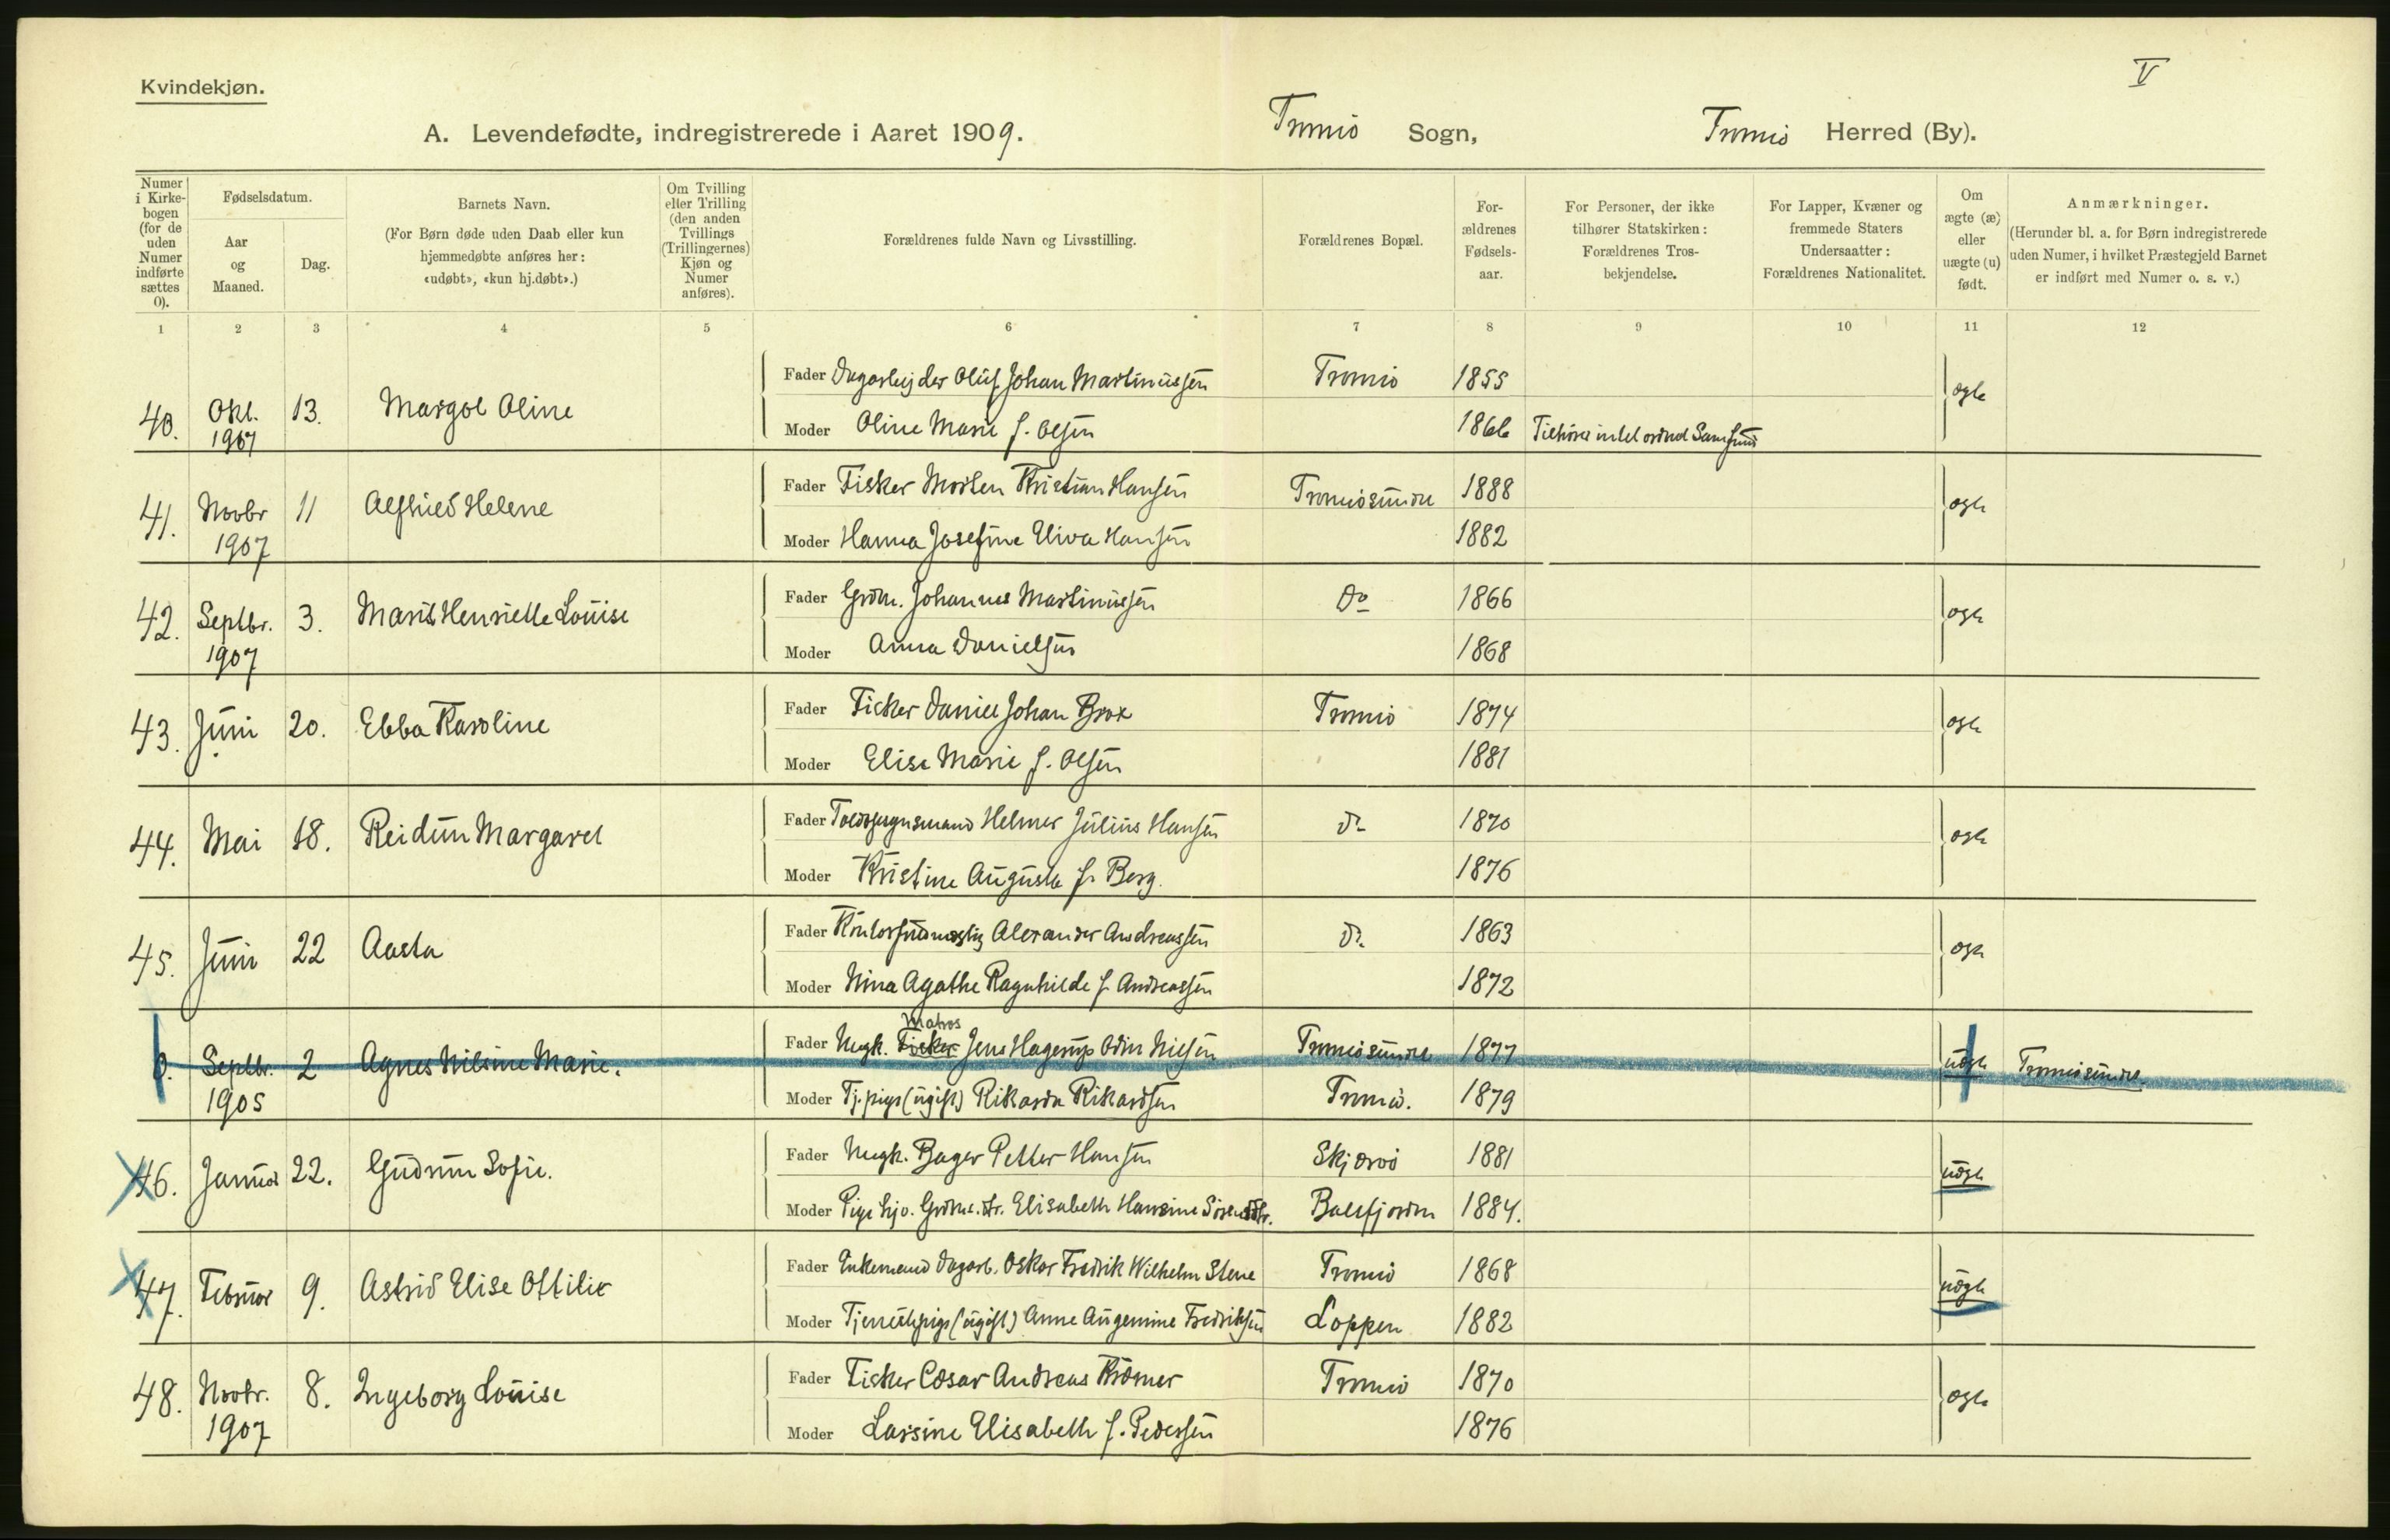 V
Kvindekjøn.
A. Levendefødte, indregistrerede i Aaret 1909. Tromsø Sogn, Tromsø Herred (By).
Numer i Kirkebogen (for de uden Numer indførte sættes 0).
Fødselsdatum.
Aar og Maaned.
Dag.
Barnets Navn.
(For Børn døde uden Daab eller kun hjemmedøbte anføres her: «udøbt», «kun hj.døbt».)
Om Tvilling eller Trilling (den anden Tvillings (Trillingernes) Kjøn og Numer anføres).
Forældrenes fulde Navn og Livsstilling.
Forældrenes Bopæl.
Forældrenes Fødselsaar.
For Personer, der ikke tilhører Statskirken: Forældrenes Trosbekjendelse.
For Lapper, Kvæner og fremmede Staters Undersaatter: Forældrenes Nationalitet.
Om ægte (æ) eller uægte (u) født.
Anmærkninger.
(Herunder bl. a. for Børn indregistrerede uden Numer, i hvilket Præstegjeld Barnet er indført med Numer o. s. v.)
1 2 3 4 5 6 7 8 9 10 11 12
40. Okt. 1907 13. Margot Oline
Fader Dagarbejder Oluf Johan Martinussen Tromsø 1855 ægte
Moder Oline Marie f. Olsen 1866 Tilhører intet ordnet Samfund
41. Novbr 1907 11 Alfhild Helene
Fader Fisker Morten Kristian Hansen Tromsøsundet 1888 ægte
Moder Hanna Josefine Hansen 1882
42. Septbr. 1907 3. Marit Henriette Louise
Fader Grdm. Johannes Martinussen Do 1866 ægte
Moder Anna Danielsen 1868
43. Juni 20. Ebba Karoline
Fader Fisker Daniel Johan Brox Tromsø 1874 ægte
Moder Elise Marie f. Olsen 1881
44. Mai 18. Reidun Margaret
Fader Toldopsynsmand Helmer Julius Hansen Do 1870 ægte
Moder Kristine Augusta f. Berg. 1876
45. Juni 22 Aasta
Fader Kontorfuldmægtig Alexander Andreassen Do 1863 ægte
Moder Nina Agathe Ragnhilde f. Andreassen 1872
0. Septbr. 1905 2 Agnes Nilsine Marie.
Matros
Fader Ungk. Fisker Jens Hagerup Odin Nilsen Tromsøsundet 1877 uægte Tromsøsundet.
Moder Tj.pige (ugift) Rikarda Rikardsen Tromsø. 1879
46. Januar 22. Gudrun Sofie.
Fader Ungk. Bager Petter Hansen Skjærvø 1881 uægte
Moder Pige hjv. Grdms.dtr. Elisabeth Hansine Sørensdtr. Balsfjorden 1884.
47. Februar 9. Astrid Elise Ottilie
Fader Enkemand Dagarb. Oskar Fredrik Wilhelm Stene Tromsø 1868 uægte
Moder Tjenestepige (ugift) Anne Augenine Fredriksen Loppen 1882
48. Novbr. 1907 8. Ingeborg Louise
Fader Fisker Cæsar Andreas Kræmer Tromsø 1870 ægte
Moder Larsine Elisabeth f. Pedersen 1876